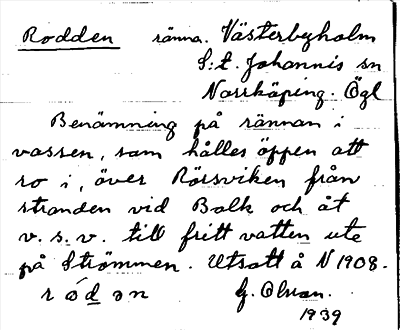 Rodden ränna. Västerbyholm
S:t. Johannis sn
Norrköping. Ögl
Benämning på rännan i
vassen, som hålles öppen att
ro i, över Rörsviken från
stranden vid Balk och åt
v. s. v. till fritt vatten ute
på Strömmen. Utsatt å N 1908.
r ó d ə n G. Olson.
1939